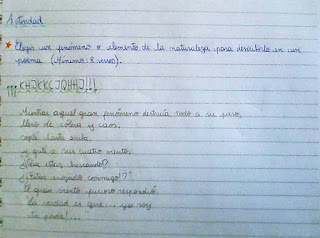 Actividad:
★ Elegir un fenómeno o elemento de la naturaleza para describirlo en un
poema (Mínimo: 8 versos).
¡¡¡ !!!
Mientras aquel gran fenómeno destruía todo a su paso,
lleno de cólera y caos,
miré hacia
y grité a los cuatro vientos:
¿Qué estás buscando?
¿¡Estás enojado conmigo!?"
El gran viento furioso respondió:
"La verdad es que... yo soy
tu padre!..."